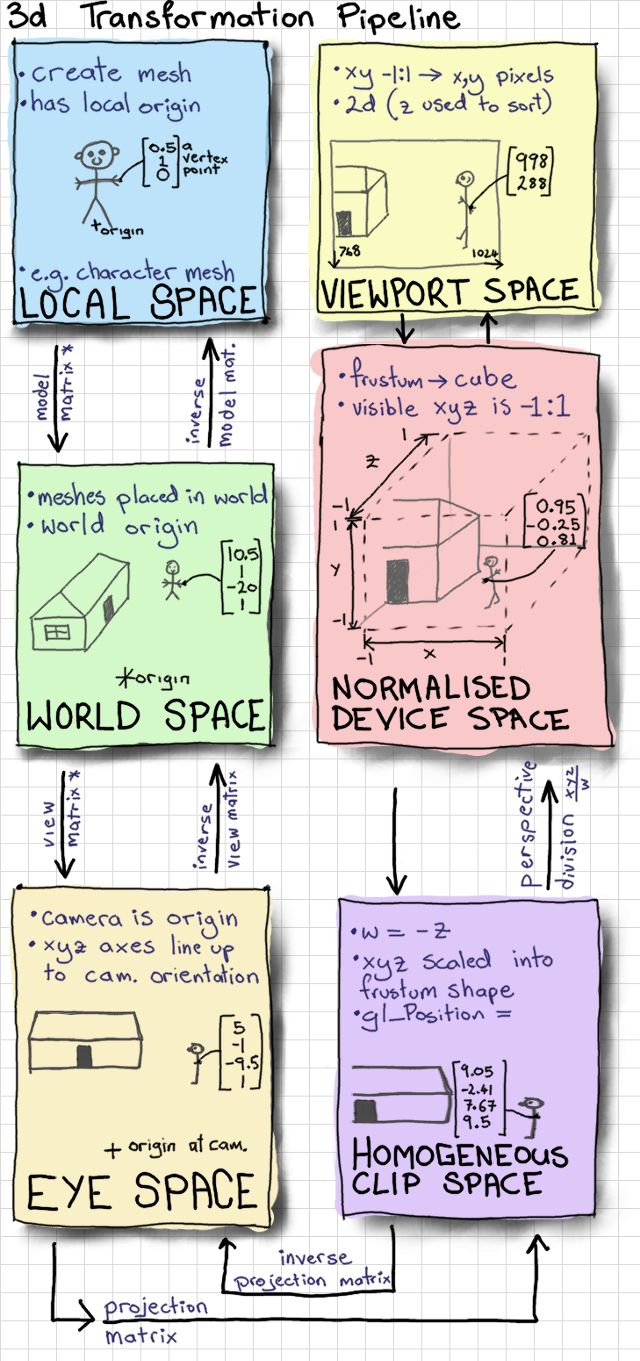 3d Transformation Pipeline
• create mesh
• has local origin
[0.5
1
0]
a
vertex
point
+origin
• e.g. character mesh
LOCAL SPACE
model
matrix *
inverse
model mat.
• meshes placed in world
• world origin
[10.5
1
-20
1]
*origin
WORLD SPACE
view
matrix *
inverse
view matrix
• camera is origin
• xyz axes line up
to cam. orientation
[5
-1
-9.5
1]
+ origin at cam.
EYE SPACE
projection
matrix
inverse
projection matrix
• w = -z
• xyz scaled into
frustum shape
• gl_Position =
[9.05
-2.41
7.67
9.5]
HOMOGENEOUS
CLIP SPACE
perspective
division xyz/w
• frustum → cube
• visible xyz is -1:1
1
z
-1
1
y
-1
-1
x
1
[0.95
-0.25
0.81]
NORMALISED
DEVICE SPACE
• xy -1:1 → x,y pixels
• 2d (z used to sort)
[998
288]
768
1024
VIEWPORT SPACE